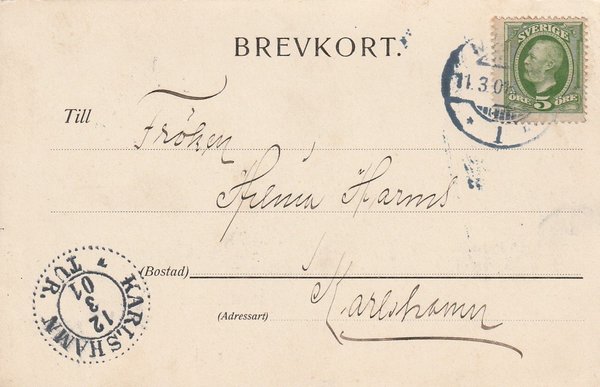 BREVKORT.
SVERIGE
ÖRE 5 ÖRE
11.3.01
1
Till
Fröken
Harms
(Bostad)
Karlshamn
(Adressort)
KARLSHAMN
TUR.
12
3
01